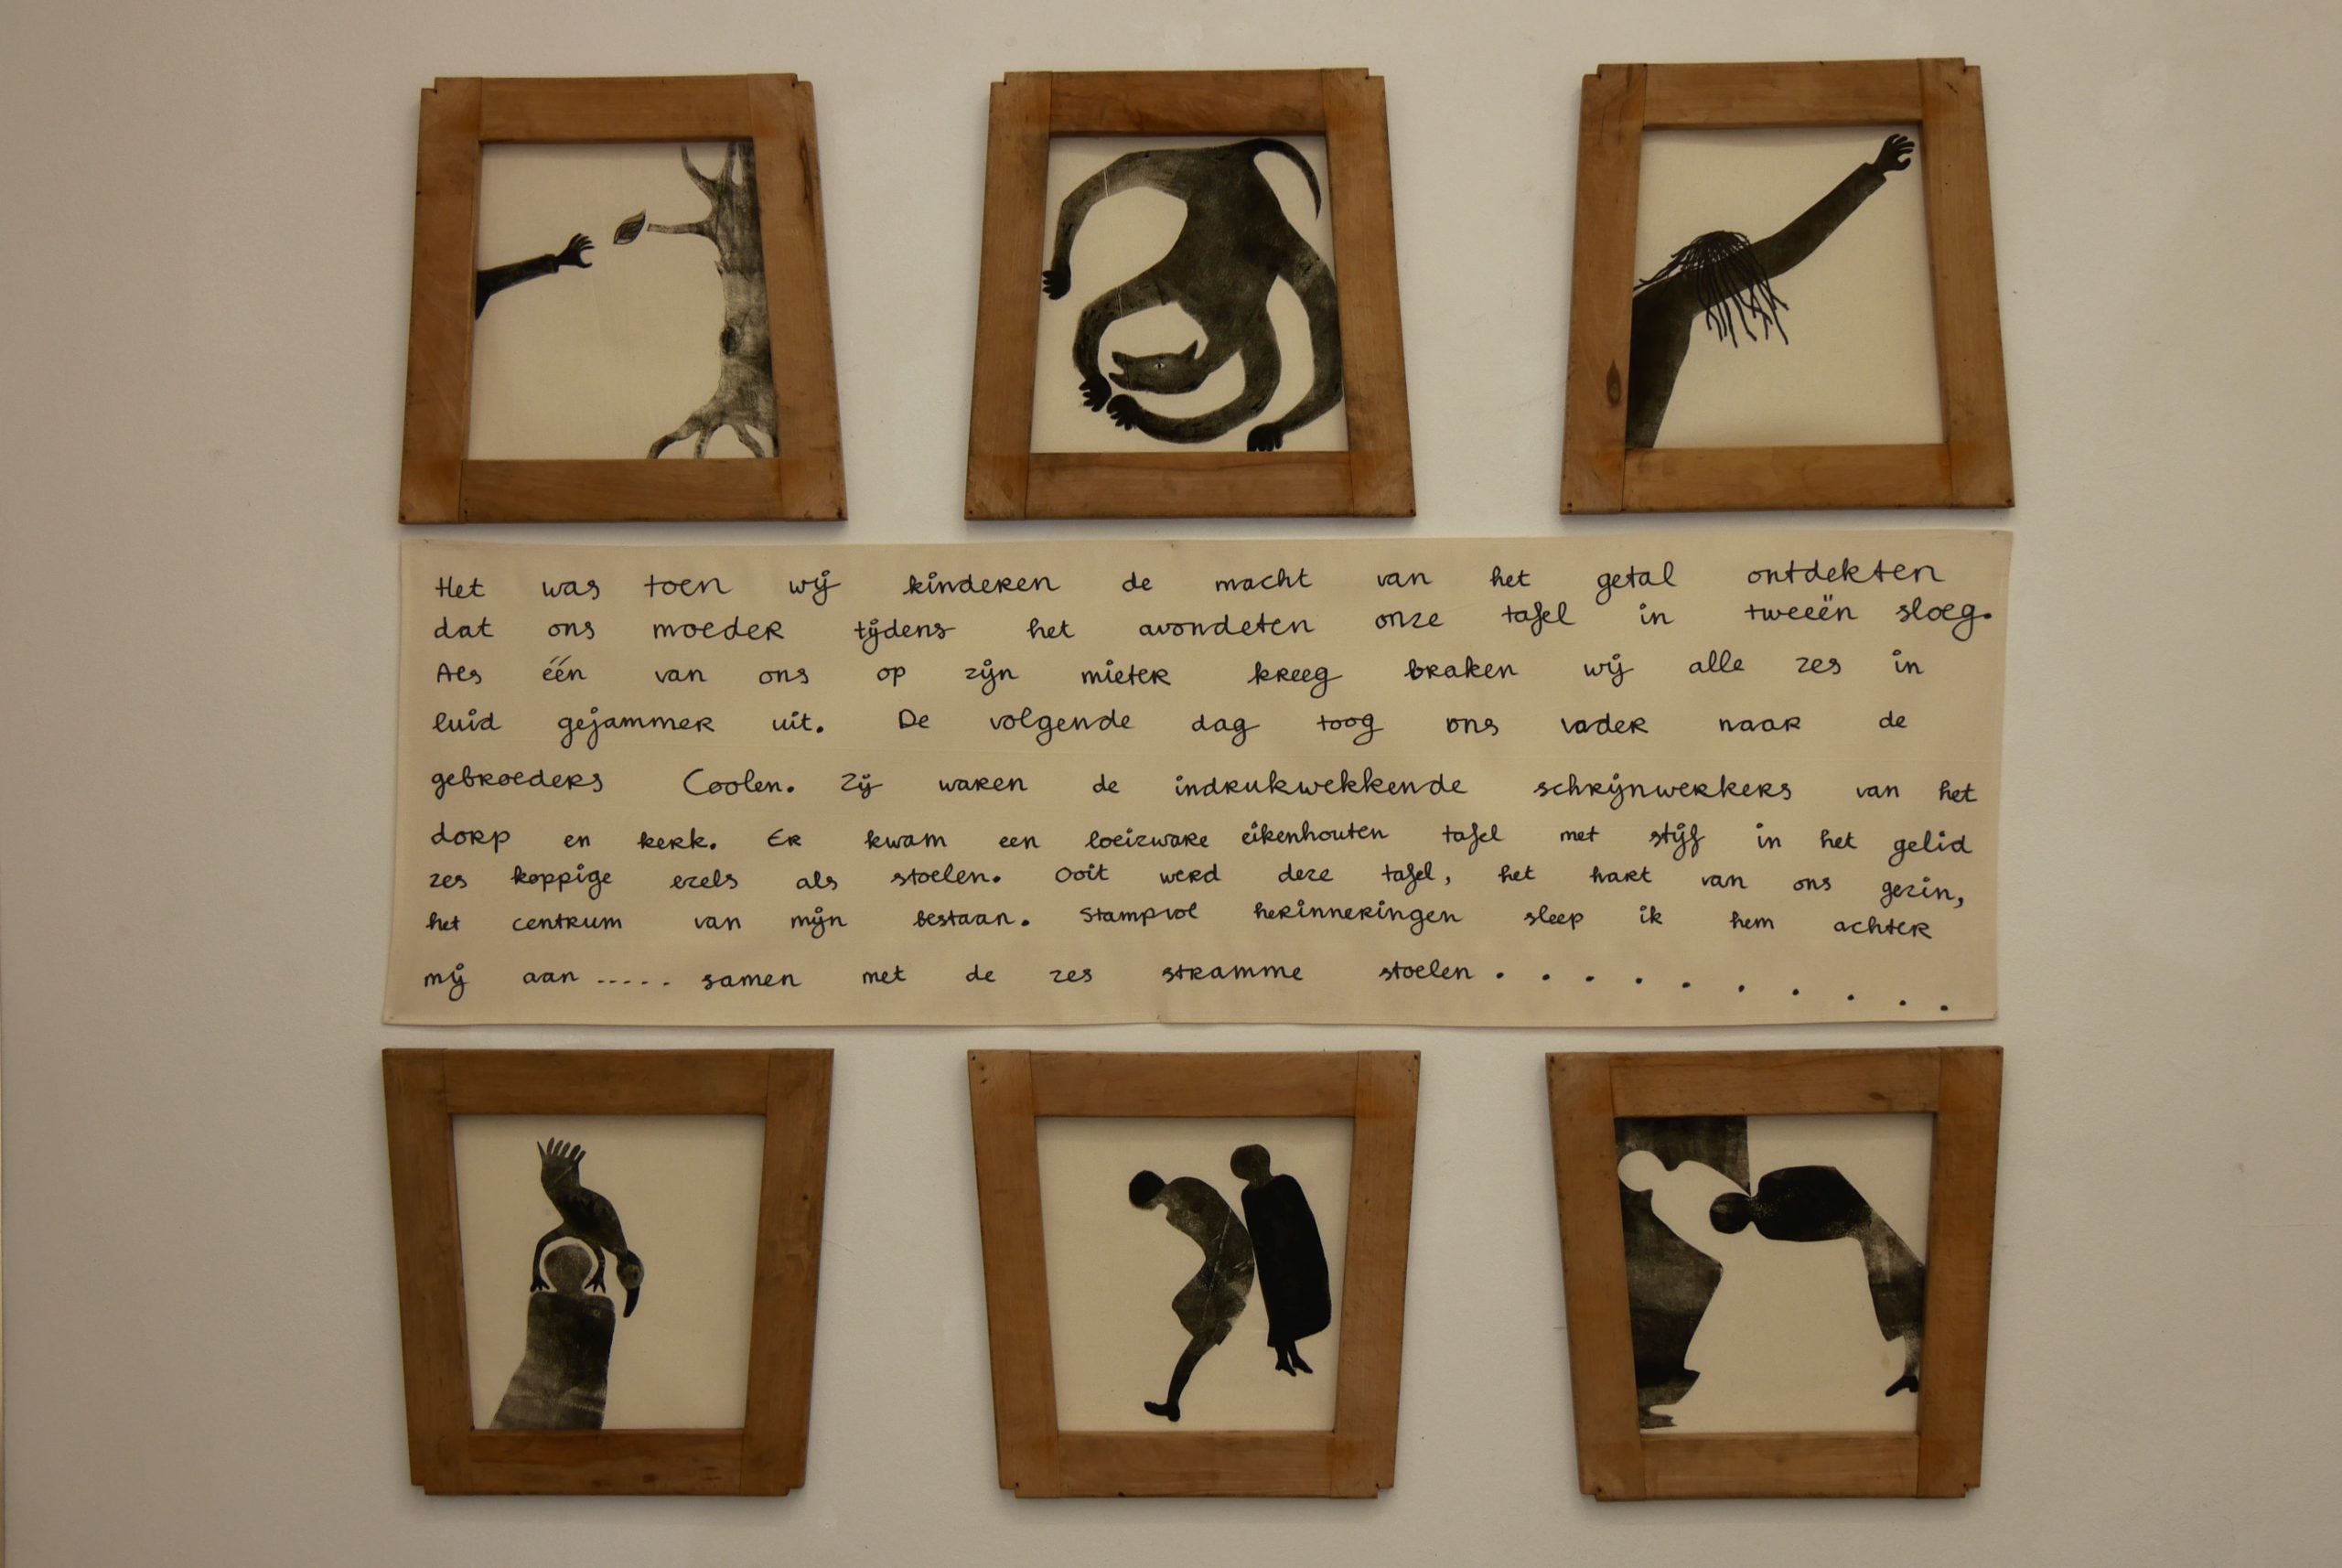 Het was toen wij kinderen de macht van het getal ontdekten
dat ons moeder tijdens het avondeten onze tafel in tweeën sloeg.
Als één van ons op zijn mieter kreeg braken wij alle zes in
luid gejammer uit. De volgende dag toog ons vader naar de
gebroeders Coolen. Zij waren de indrukwekkende schrijnwerkers van het
dorp en kerk. Er kwam een loeizware eikenhouten tafel met stijf in het gelid
zes koppige ezels als stoelen. Ooit werd deze tafel, het hart van ons gezin,
het centrum van mijn bestaan. Stampvol herinneringen sleep ik hem achter
mij aan ..... samen met de zes stramme stoelen . . . . . . . . . .